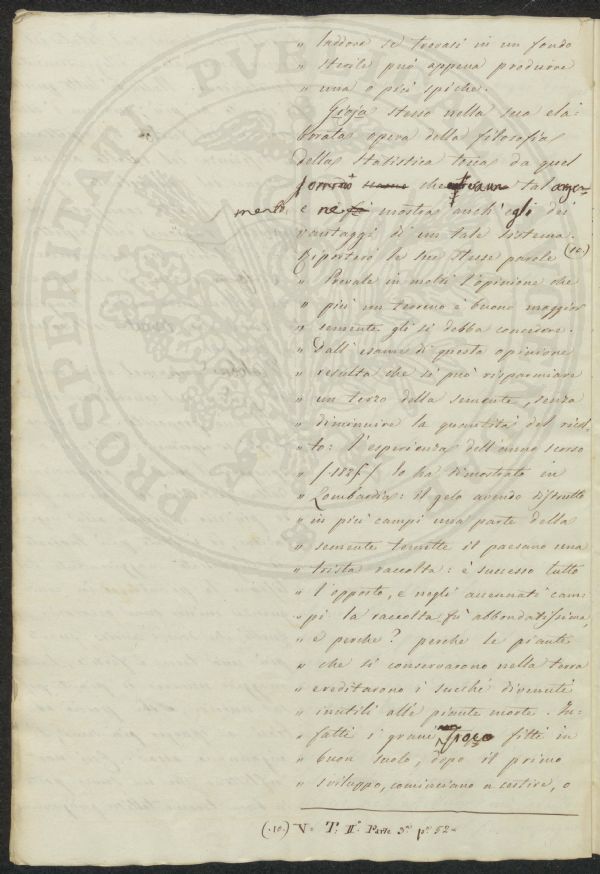 " laddove se trovasi in un fondo
" sterile può appena produrre
" una o più spiche.
Gioja stesso nella sua ela:
borata opera della filosofia
della statistica tocca da quel
sommo che tal argo-
mento, e mostra anch' gli dei
vantaggi di un tale sistema.
Riporterò le sue stesse parole (10.)
" Prevale in molti l'opinione che
" più un terreno è buono maggior
" semente gli si debba concedere.
" Dall' esame di questa opinione
" resulta che si può risparmiare
" un terzo della semente, senza
" diminuire la quantità del ricol-
" to: l'esperienza dell'anno scorso
" lo ha dimostrato in
" Lombardia: il gelo avendo distrutto
" in più campi una parte della
" semente temette il paesano una
" trista raccolta: è successo tutto
" l'opposto, e negli accennati cam
" pi la raccolta fù abbondatissima,
" e perchè? perchè le piante
" che si conservarono nella terra
" ereditarono i succhi divenuti
" inutili alle piante morte. In:
" fatti i grani poco fitti in
" buon suolo, dopo il primo
" sviluppo, cominciano a cestire, o
(10.) V. T. II.° Parte 3.ª p.ª 52
PROSPERITATI PVBLICAE